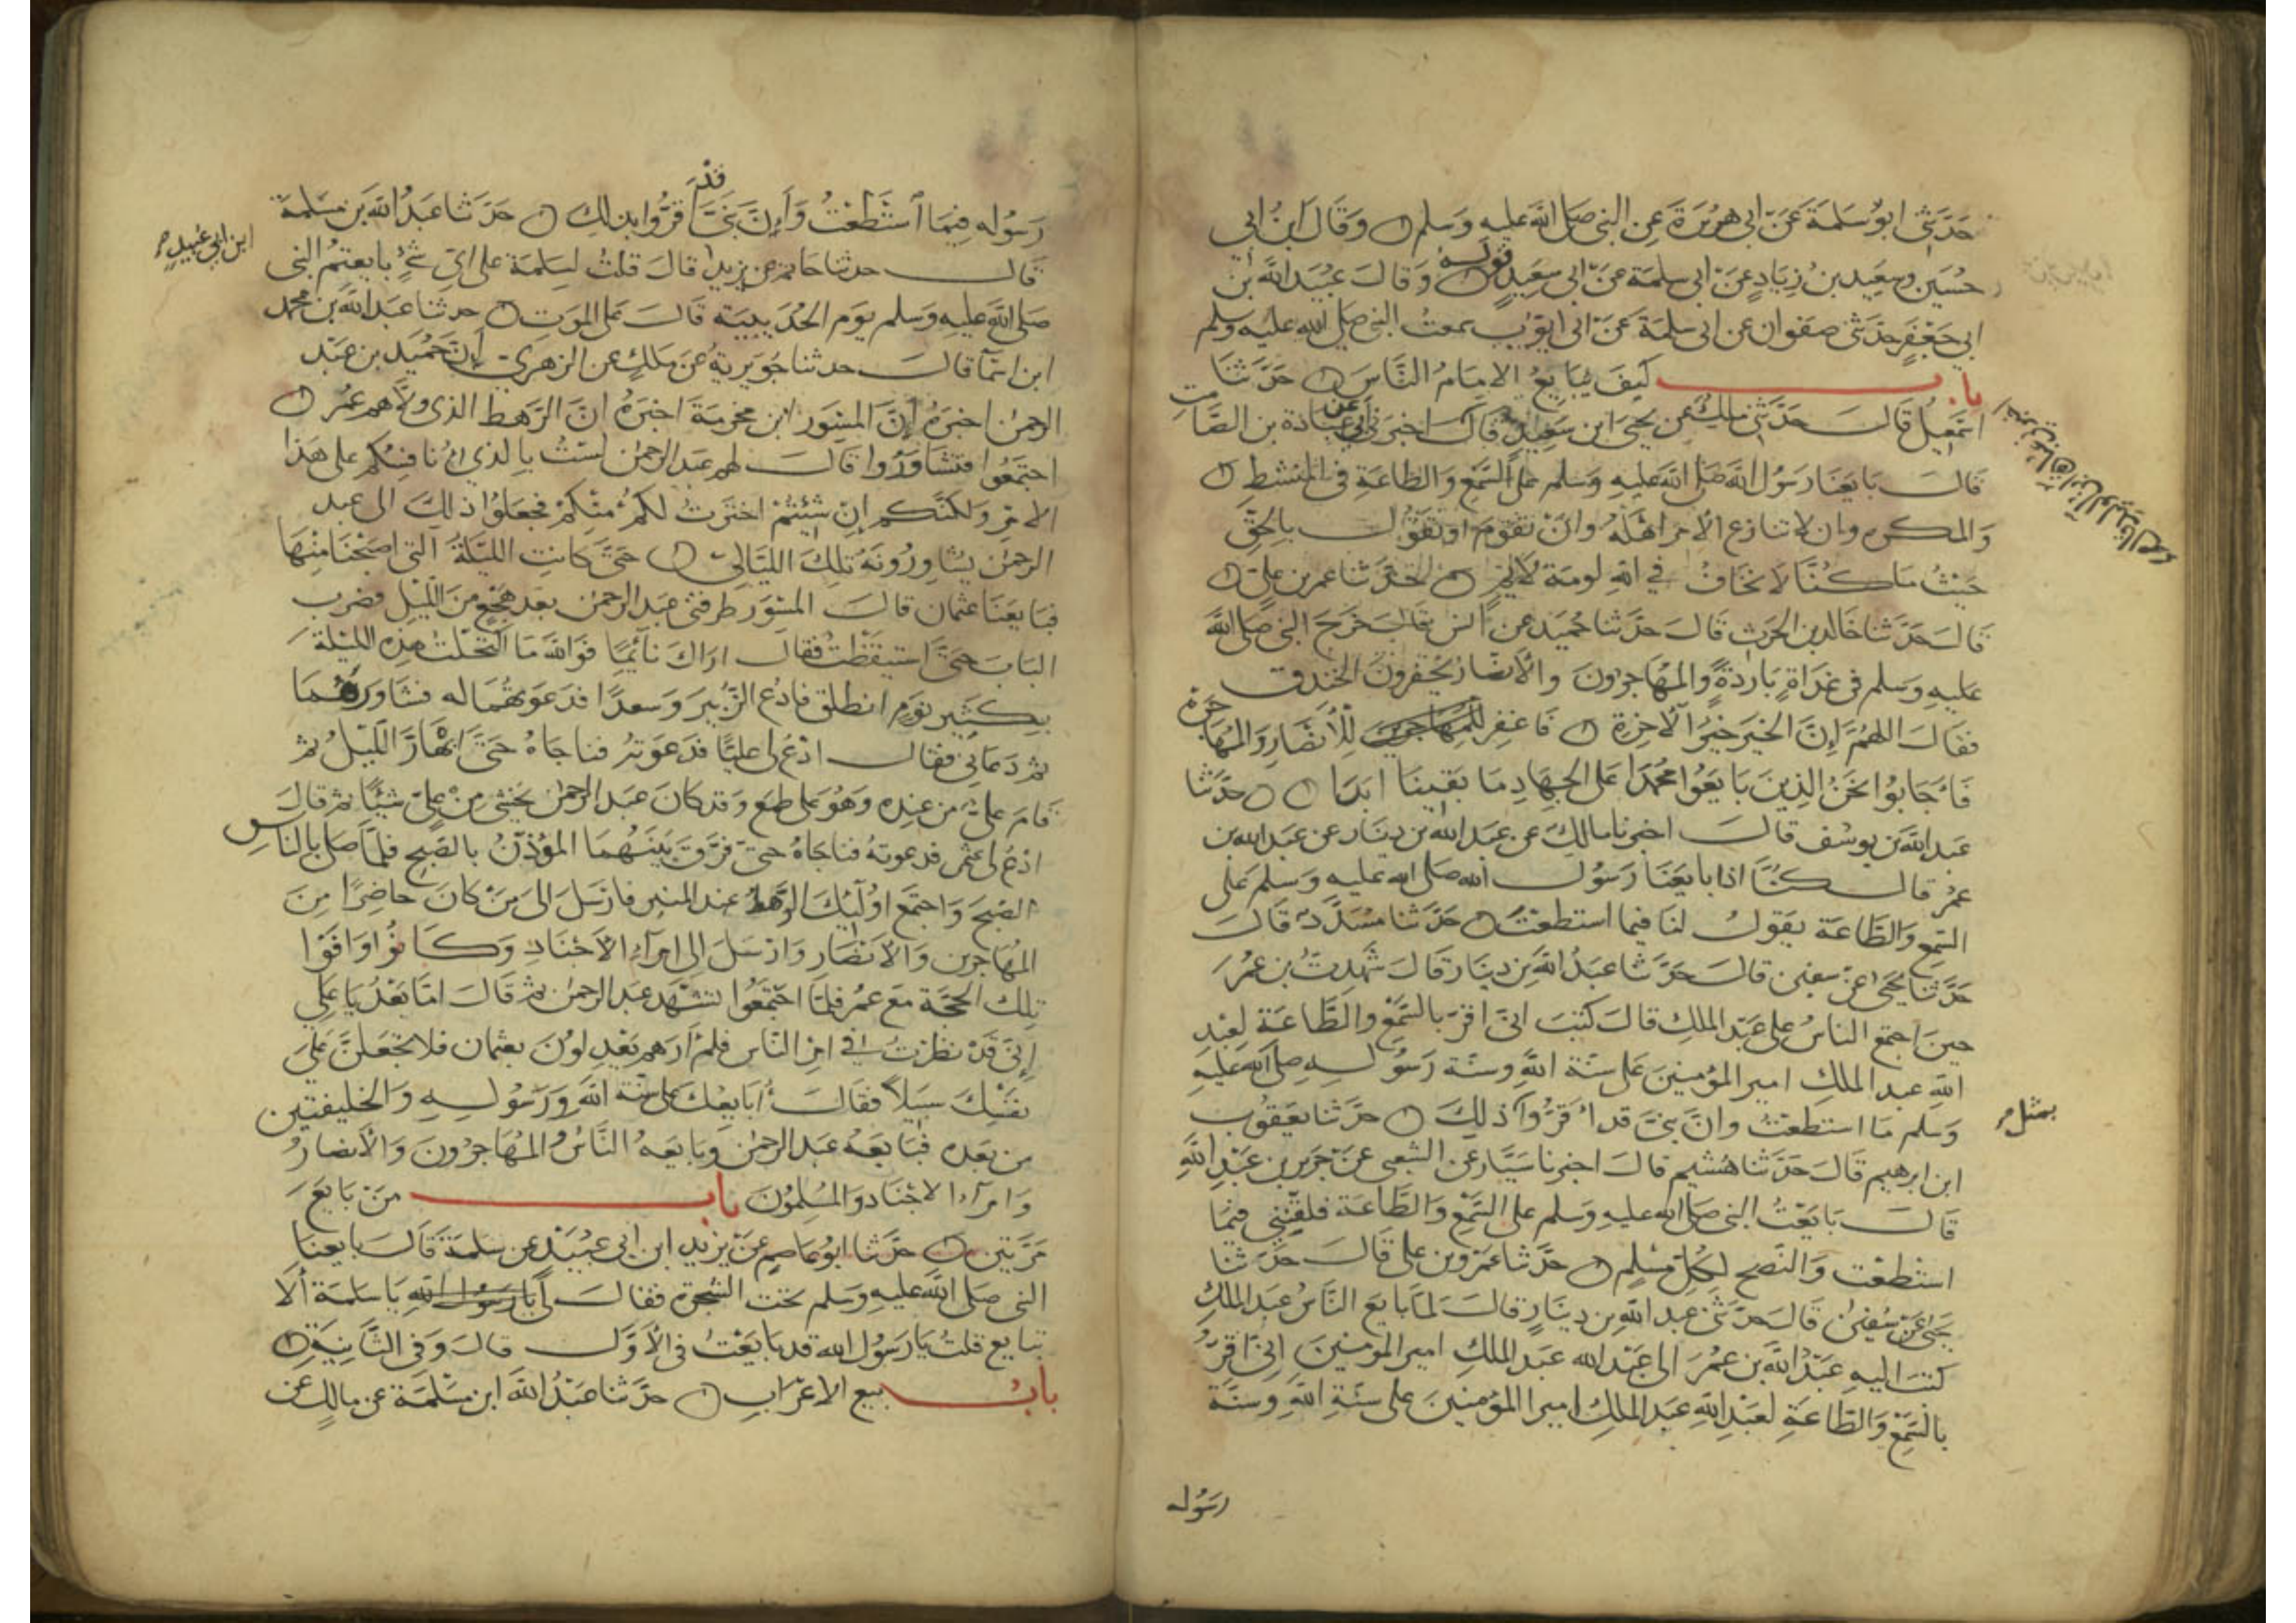 حَدَّثَنِي ابو سَلمَةَ عَنْ ابى هريْرَةَ عَن النبى صَلى اللَّه عليهِ وَسَلم وَقَالَ ابنُ ابى
حُسَين وسَعِيد بنُ زِيَادٍ عَنْ ابى سلمَة عَنْ ابى سعِيدٍ قوله وَقالَ عبَيد اللَّه بن
ابى جَعفَرٍ حدّثنى صفوان عن ابى سلمَة عَنْ ابى ايّوب سمعتُ النبى صلى الله عليه وسلم
باب كيفَ يُبَايعُ الامَامُ النَّاسَ حَدّثنا
اسمعيلُ قَالَ حَدّثنى ملكٌ عن يحيى ابن سَعِيد قالَ اخبرَنى عبَادة بن الصَّامت
اخبرنى ابى
قالَ بَايَعنَا رَسُولَ اللَّه صَلى اللَّه عَليهِ وَسلم على السَّمْعِ وَالطَّاعَةِ فى المنْشطِ
وَالمكره وان لا تنازع الامرَ اهْلَهُ وانْ نقوْمَ او نقوْلَ بالحقّ
حَيْثُ مَا كُنَّا لا نخَافُ فى اللهِ لومَة لائمٍ حدّثنا عمر بن علىّ
قَالَ حَدّثنا خالد بن الحَرث قَالَ حَدّثنا حُمَيد عن انس قال خَرَجَ النبى صلى الله
عليهِ وَسلم فى غدَاةٍ بَاردَةٍ وَالمهَاجرُونَ والأنصَارُ يحْفرونَ الخنْدق
فقالَ اللهُمَّ إنَّ الخيرَ خيْرُ الآخِرَةِ فَاغفِر للمهاجرين للْأنصَارِ وَالمهَاجرَة
فَأجَابُوا نحَنُ الذِينَ بَايَعُوا محمَّدا عَلى الجهَادِ مَا بَقينَا ابَدَا حدَّثنا
عَبد اللَّه بن يوسُف قالَ اخبرنا مالكَ عن عبَد الله بن دينَار عن عبد الله بن
عمر قالَ كنّا اذا بايَعنا رَسُول الله صَلى الله عليهِ وَسلم على
السّمع وَالطَّاعَة يقولُ لنَا فيما استطعْتُ حدّثنا مسَدَّد قالَ
حَدّثنا يحيَى عنْ سفين قالَ حَدّثنا عبدُ اللَّه بن دِينَار قالَ شهدتُ بن عُمَرَ
حينَ اجتمع الناسُ على عبْد الملِكِ قالَ كتبَ انّى اقرّ بالسّمْعِ وَالطَّاعَة لعبْدِ
اللهِ عبد الملكِ امير المؤمنينَ عَلى سنّة اللهِ وسنّة رَسُولهِ صلى الله عليه
وَسلم مَا استطَعْتُ وانَّ بنىَّ قدْ اقَرُّوا ذلِكَ حدّثنا يعقوب
بمثل
ابن ابرهيم قالَ حَدّثنا هُشَيم قالَ اخبرنا سَيّار عن الشعبى عنْ جَرير بن عَبْد اللهِ
قَالَ بَايَعْتُ النبى صلى الله عليهِ وَسلم على السَّمْعِ وَالطَّاعَة فلقَّنَنِى فيمَا
استْطعْت وَالنّصح لِكُلّ مُسْلِم حَدّثنا عمَرو بن على قَالَ حدّثنا
يحيى عَنْ سُفْين قالَ حدّثنى عبد الله بن دينَارٍ قالَ لمّا بَايعَ النَّاسُ عبد الملكِ
كتبَ اليهِ عَبْدُ اللَّه بن عُمرَ الى عَبْد الله عَبد الملكِ امير المؤمنينَ انّى اقرّ
بالسَّمْعِ وَالطَّاعَةِ لعَبْد اللهِ عَبد الملِك امير المؤمِنينَ على سنّةِ اللهِ وسنَّة
رسُوله
رَسُوله فِيمَا استَطعْتُ وَإنَّ بَنىَّ قد اقرُّوا بذلِكَ حَدَّثنا عبدُ اللَّه بن مَسْلمَةَ
قال حدثنا حَاتم عن يزيد قالَ قلتُ لسَلمَةَ على اىّ شئٍ بايعتمُ النبى
ابن ابى عُبيدٍ
صَلى اللَّه عَليهِ وَسلم يَوم الحُدَيبيَة قَالَ عَلى الموَت حدثنا عبد اللَّه بن محمد
ابن اسمآ قالَ حدثنا جُوَيريةُ عن ملكٍ عن الزهرى أنَّ حُمَيد بن عبْد
الرحمن اخبَرهُ أنَّ المسْوَر ابن مخرمَة اخبَرهُ انَّ الرّهط الذى ولّاهم عمُر
اجتمَعُوا فتشاوَرُوا قالَ لهم عَبد الرحمن لسْتُ بالذى انَافسُكم على هَذا
الامر وَلكنَّكم إنْ شئتُمْ اخترْتُ لكمُ منكمْ فجعَلوُا ذلكَ الى عبد
الرحمن يشاورُونَهُ تلكَ الليَالى حَتى كانتِ الليْلَةُ التى اصبَحْنَا منْهَا
فبَايعَنَا عثمان قالَ المسْوَر طرقنى عبد الرحمن بعد هَجْعٍ منَ اللَّيلِ فضَربَ
البَابَ حتىَّ استيقظتُ فقالَ ارَاكَ نائمًا فوَالله مَا اكتحَلتُ هذِه الليْلة
بِكَثير نَوم انطلق فادعُ الزُّبيرَ وَسعدًا فدعَوتهُمَا له فشاوَرَهُمَا
ثم دَعَانى فقالَ ادْعُ لى عليًّا فدعَوتهُ فناجَاهُ حَتى ابْهَارَّ اللَّيْلُ ثم
قامَ علىّ من عندِه وَهُوَ على طمع وَقد كانَ عبد الرحمن يخشى مِنْ علىّ شيْئًا ثم قالَ
ادْعُ لى عثمن فدعوتهُ فناجَاهُ حتى فرَّقَ بَينَهُمَا المؤذّنُ بالصّبحِ فلمَّا صَلى بالناس
الصّبحَ وَاجتمعَ اولئكَ الرهطُ عند المنبر فارسَلَ الى مَنْ كانَ حاضِرًا مِنَ
المهَاجرين وَالأنصَار وَارْسَلَ الى امَرآء الأجْنَاد وَكَانُوا وَافَوْا
تلكَ الحَجّة مع عمُر فلمّا اجْتمَعُوا تشهَّد عَبد الرحمن ثم قالَ امّا بَعْدُ يَا عَلى
إنّى قَدْ نظرْتُ فى امر النّاس فلمْ أرَهم يَعْدِلُونَ بعثمان فلا تجعَلنَّ على
نفسِكَ سَبيلًا فقالَ أبَايعُكَ على سنَّة اللهِ وَرَسُوله وَالخليفتين
من بَعْده فبَايَعَهُ عبد الرحمن وبَايعَه النَّاسُ وَالمهَاجرُونَ وَالأنصارُ
وَامرآءُ الاجْنَاد وَالمُسْلِمُونَ باب منْ بَايعَ
مَرَّتين حدَّثنا ابو عاصمٍ عَنْ يَزيد ابن ابى عبَيْدٍ عن سَلمةَ قَالَ بَايعنَا
النبى صَلى اللَّه عليهِ وَسلم تحت الشجَرة فقالَ لى يا رسول الله يَا سَلمَة ألَا
تبَايع قلتُ يَا رَسُولَ الله قد بَايَعْتُ فى الأوَّلِ قالَ وَفى الثَّانِيَةِ
بابُ بيع الاعرَابِ حدّثنا عبْدُ اللَّه ابن مسْلَمَة عن مالكٍ عن